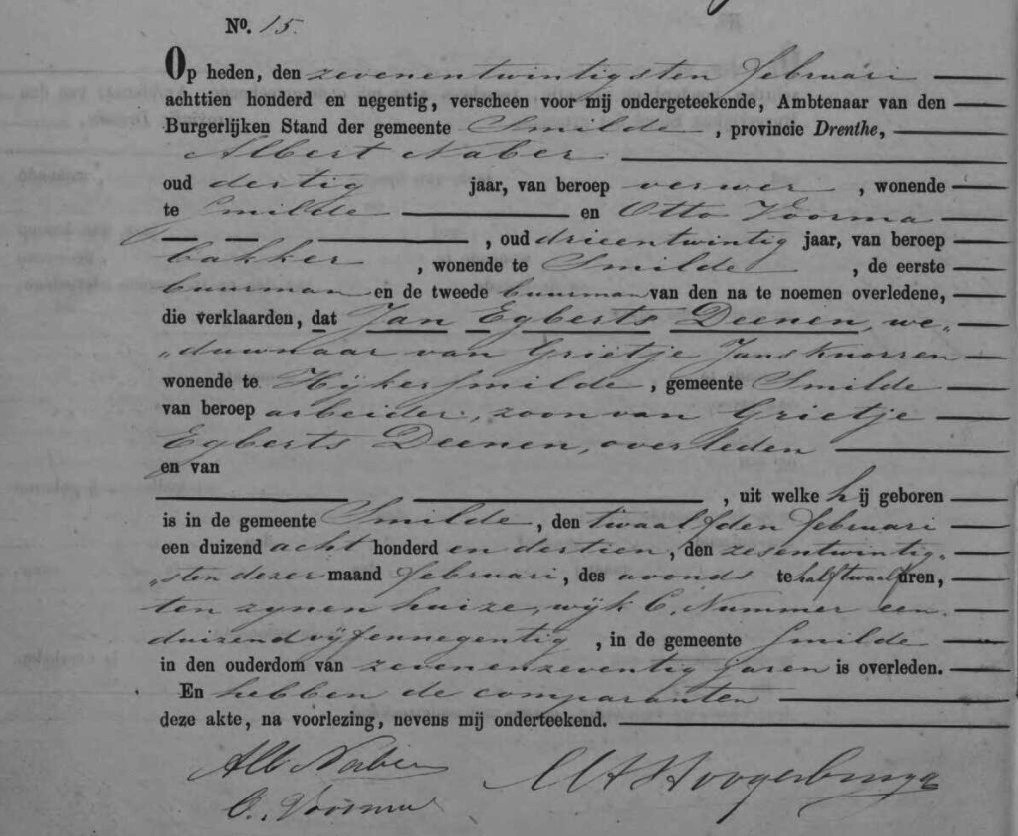 No. 15.
Op heden, den zevenentwintigsten februari
achttien honderd en negentig, verscheen voor mij ondergeteekende, Ambtenaar van den
Burgerlijken Stand der gemeente Smilde, provincie Drenthe,
Albert Naber
oud dertig jaar, van beroep verwer, wonende
te Smilde en Otto Voorma
, oud drieentwintig jaar, van beroep
bakker, wonende te Smilde, de eerste
buurman en de tweede buurman van den na te noemen overledene,
die verklaarden, dat Jan Egberts Deenen, we„
„duwnaar van Grietje Jans Knorren
wonende te Hijkersmilde, gemeente Smilde
van beroep arbeider, zoon van Grietje
Egberts Deenen, overleden
en van
, uit welke hij geboren
is in de gemeente Smilde, den twaalfden februari
een duizend acht honderd en dertien, den zesentwintig„
„sten dezer maand februari, des avonds te half twaalf uren,
ten zynen huize, wijk C. Nummer een
duizend vijfennegentig, in de gemeente Smilde
in den ouderdom van zevenenzeventig jaren is overleden.
En hebben de comparanten
deze akte, na voorlezing, nevens mij onderteekend.
Alb Naber
O. Voorma